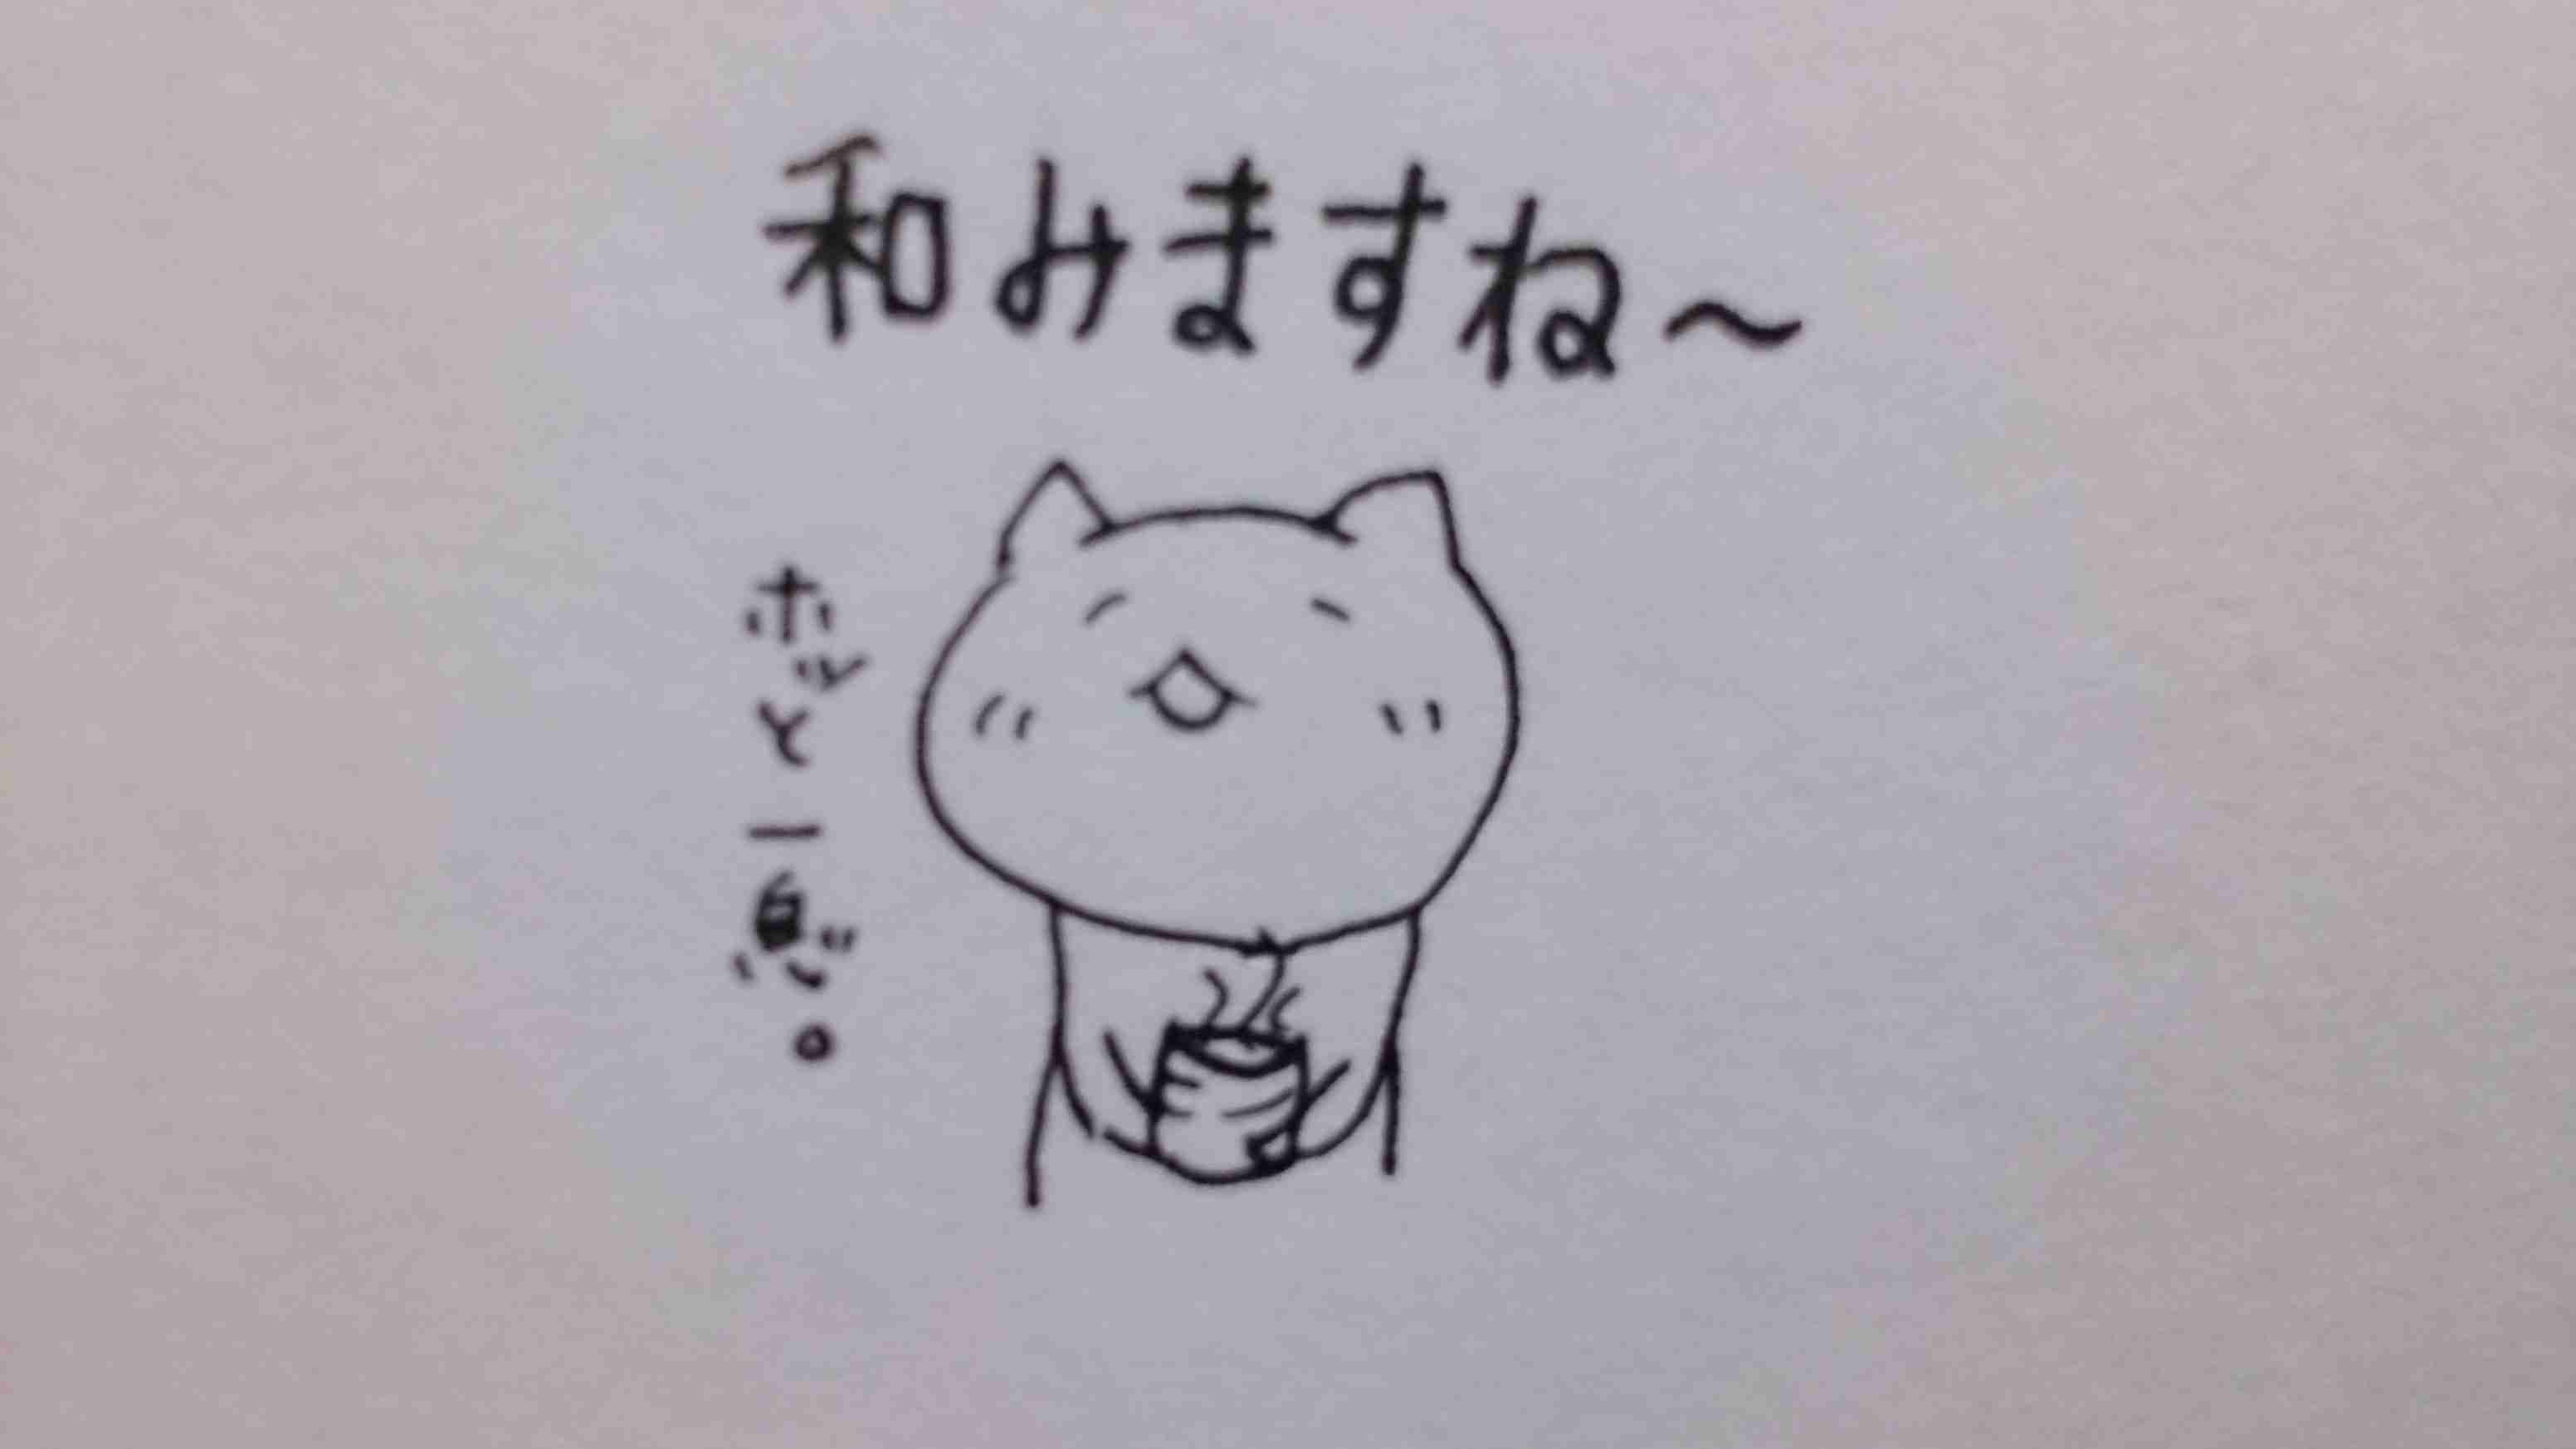 和みますね～
ホッと一息。